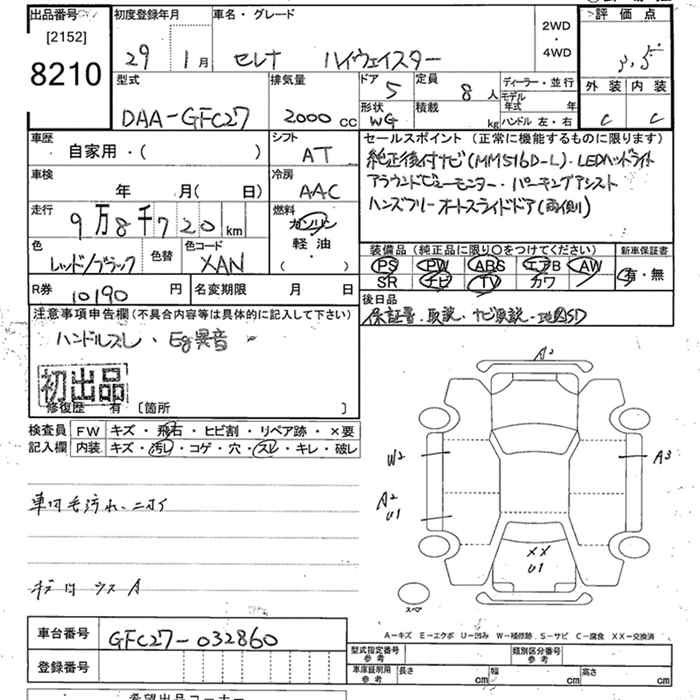 出品番号
[2152]
8210
初度登録年月
29 1月
車名・グレード
セレナ ハイウェイスター
2WD
・
4WD
評価点
3.5
外装 内装
C C
型式
DAA-GFC27
排気量
2000 CC
ドア 5
形状 WG
定員 8 人
積載 kg
ディーラー・並行
モデル年式 年
ハンドル 左・右
車歴
自家用・( )
シフト
AT
車検
年 月( 日)
冷房
AAC
走行
9万8千720km
燃料
ガソリン
軽油
( ・ )
色
レッド/ブラック
色替
色コード
XAN
R券 10190 円
名変期限 月 日
セールスポイント(正常に機能するものに限ります)
純正後付ナビ(MM516D-L)・LEDヘッドライト
アラウンドビューモニター・パーキングアシスト
ハンズフリーオートスライドドア(両側)
装備品(純正品に限り○をつけてください)
PS PW ABS エアB AW
SR ナビ TV カワ
新車保証書
有・無
後日品
保証書・取説・ナビ取説・地図SD
注意事項申告欄(不具合内容等は具体的に記入して下さい)
ハンドルズレ・Eg異音
初出品
修復歴 有 [箇所 ]
検査員記入欄
FW キズ・飛石・ヒビ割・リペア跡・×要
内装 キズ・汚レ・コゲ・穴・スレ・キレ・破レ
車内毛汚れ、ニオイ
A2
W2
A3
A2
U1
XX
U1
スペア
A-キズ E-エクボ U-凹み W-補修跡 S-サビ C-腐食 XX-交換済
車台番号 GFC27-032860
登録番号
型式指定番号 参考
類別区分番号 参考
車庫証明用 参考
長さ cm 幅 cm 高さ cm
希望出品コーナー